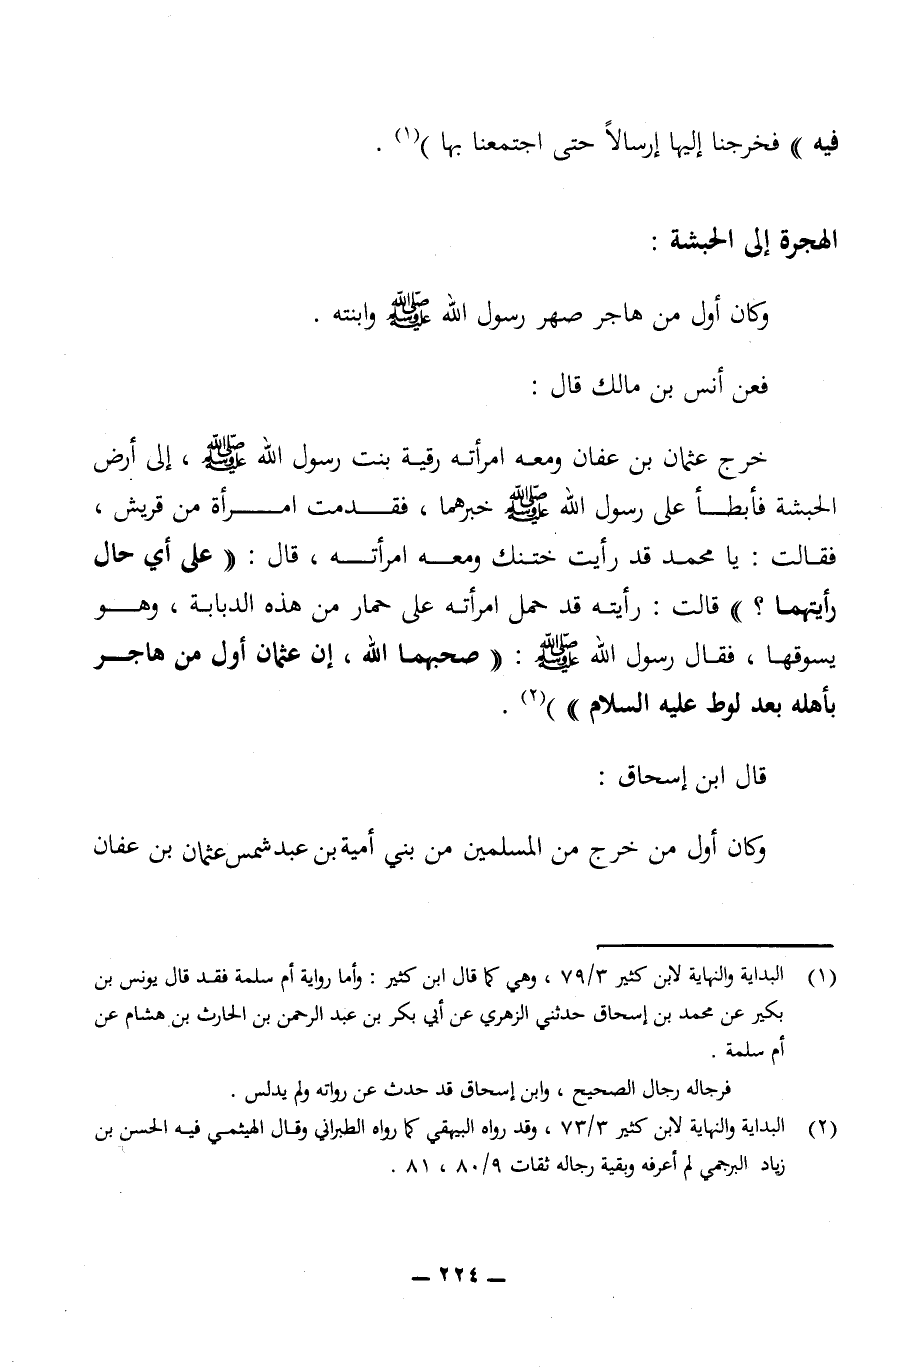 فيه )) فخرجنا إليها إرسالاً حتى اجتمعنا بها )(١) .
الهجرة إلى الحبشة :
وكان أول من هاجر صهر رسول الله ﷺ وابنته .
فعن أنس بن مالك قال :
خرج عثمان بن عفان ومعه امرأته رقية بنت رسول الله ﷺ ، إلى أرض
الحبشة فأبطأ على رسول الله ﷺ خبرهما ، فقدمت امرأة من قريش ،
فقالت : يا محمد قد رأيت ختنك ومعه امرأته ، قال : (( على أي حال
رأيتهما ؟ )) قالت : رأيته قد حمل امرأته على حمار من هذه الدبابة ، وهو
يسوقها ، فقال رسول الله ﷺ : (( صحبهما الله ، إن عثمان أول من هاجر
بأهله بعد لوط عليه السلام )) )(٢) .
قال ابن إسحاق :
وكان أول من خرج من المسلمين من بني أمية بن عبد شمس عثمان بن عفان
(١) البداية والنهاية لابن كثير ٧٩/٣ ، وهي كما قال ابن كثير : وأما رواية أم سلمة فقد قال يونس بن
بكير عن محمد بن إسحاق حدثني الزهري عن أبي بكر بن عبد الرحمن بن الحارث بن هشام عن
أم سلمة .
فرجاله رجال الصحيح ، وابن إسحاق قد حدث عن رواته ولم يدلس .
(٢) البداية والنهاية لابن كثير ٧٣/٣ ، وقد رواه البيهقي كما رواه الطبراني وقال الهيثمي فيه الحسن بن
زياد البرجمي لم أعرفه وبقية رجاله ثقات ٨٠/٩ ، ٨١ .
ــ ٢٢٤ ــ